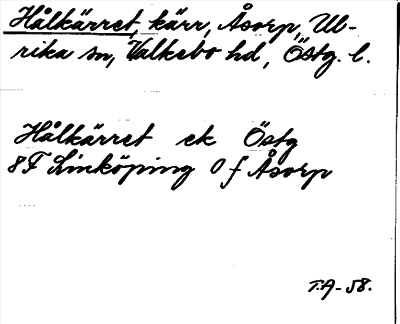 Hålkärret, kärr, Åsorp, Ul-
rika sn, Valkebo hd, Östg. l.
Hålkärret ek Östg
8F Linköping 0 f Åsorp
T.A-58.